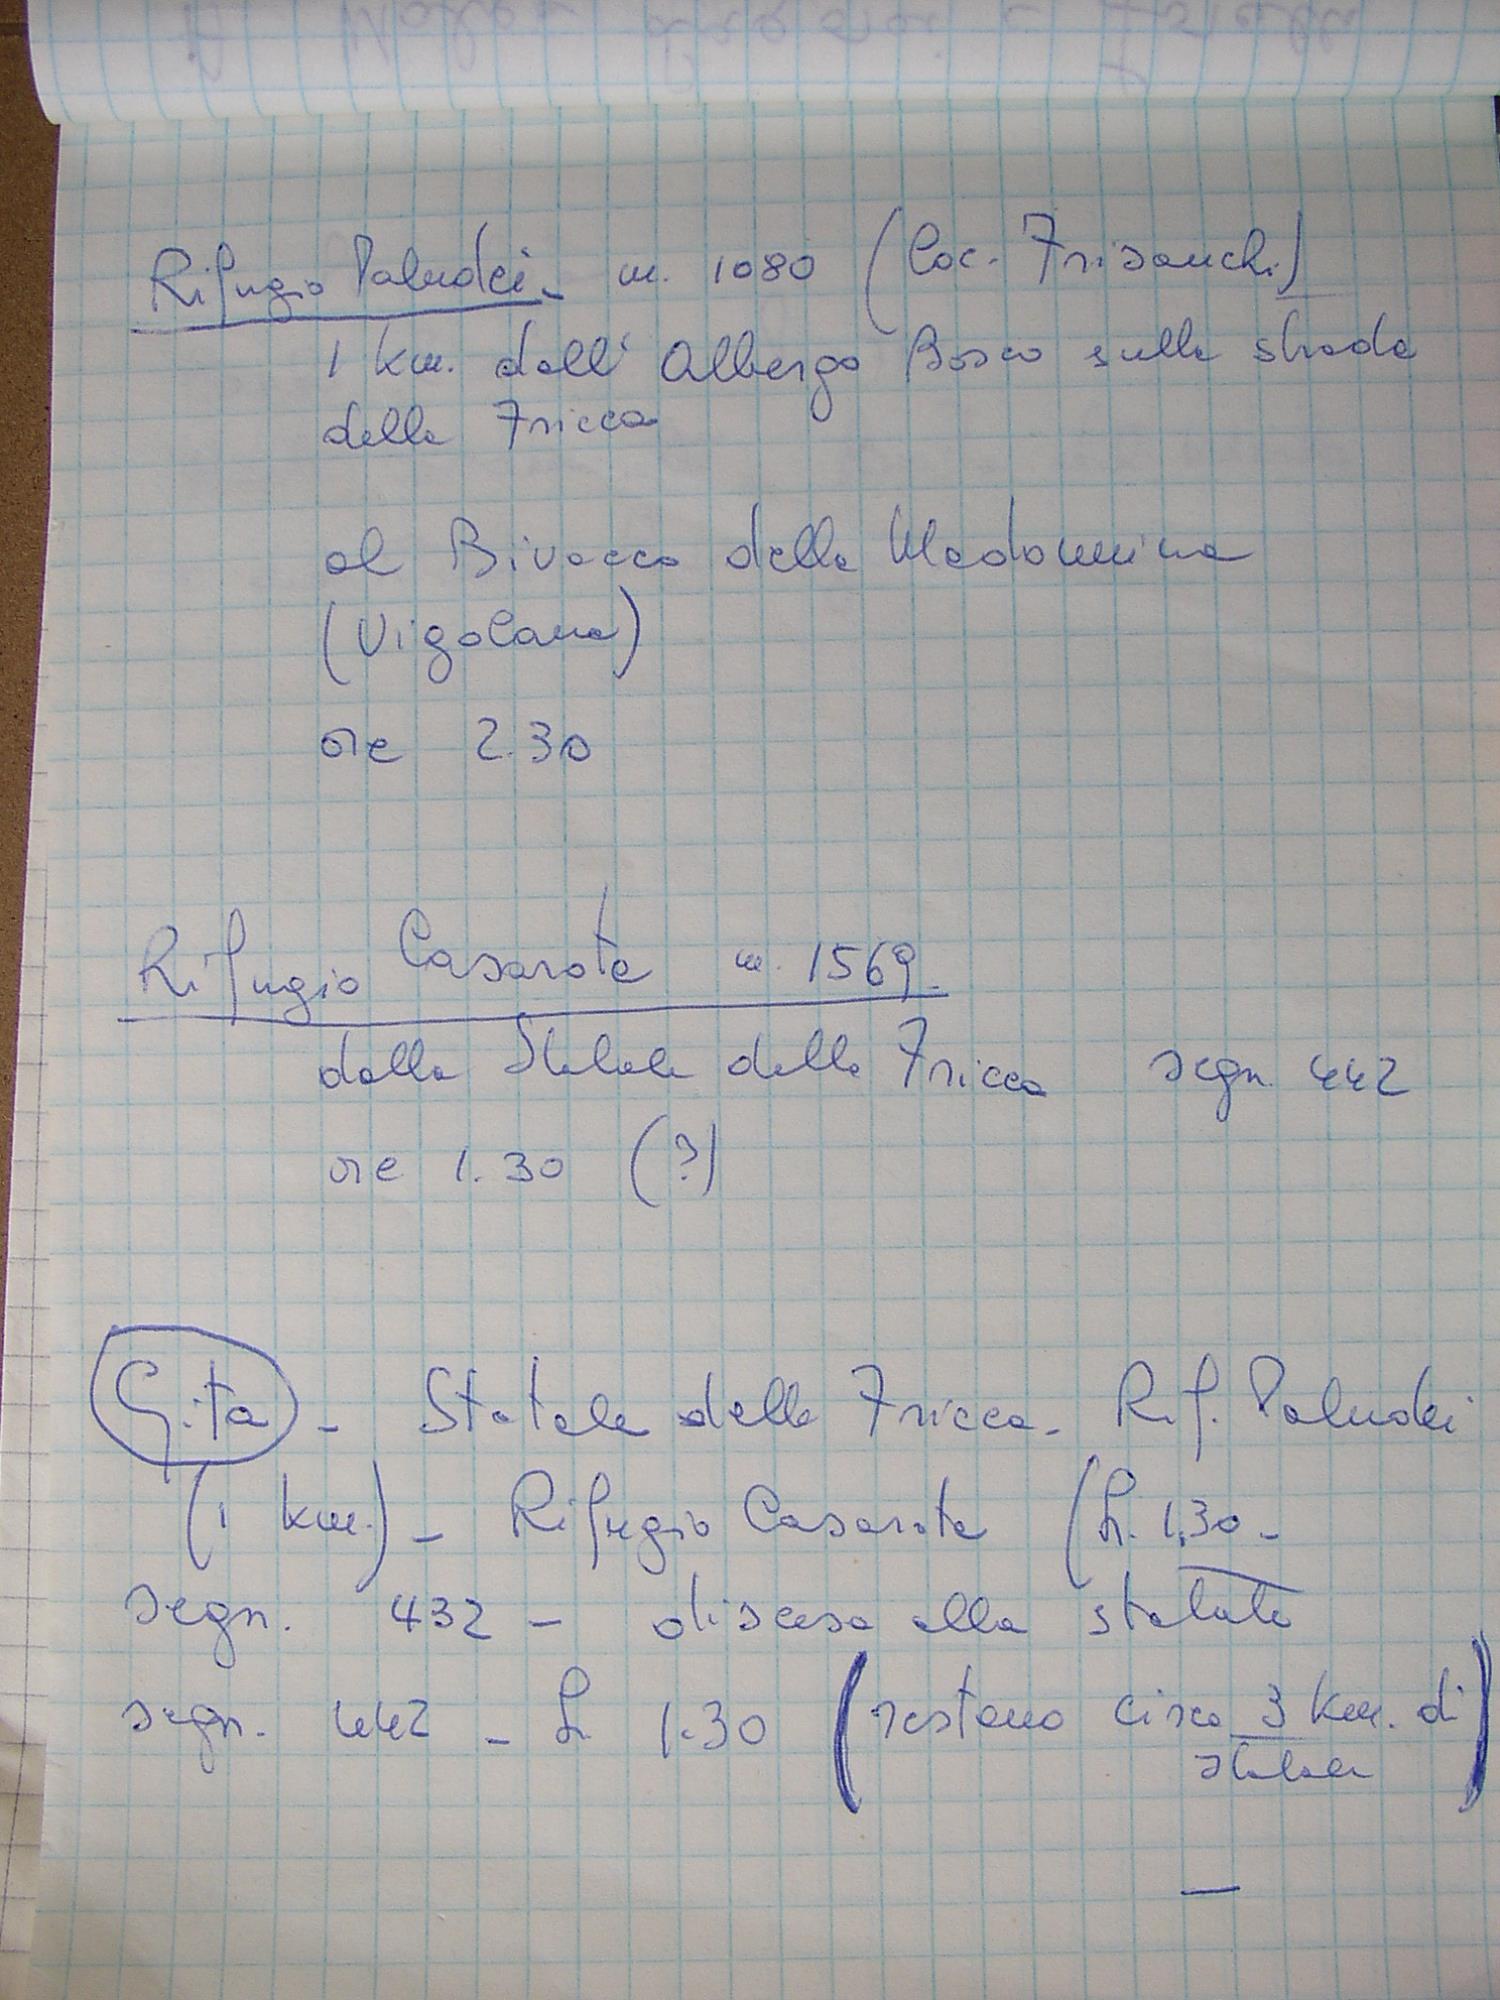 Rifugio Paludei - m. 1080 (loc. Frisanchi)
1 km. dall' Albergo Bosco sulla strada
della Fricca
al Bivacco della Madonnina
(Vigolana)
ore 2.30
Rifugio Casarota m. 1569.
dalla Statale della Fricca segn. 442
ore 1.30 (?)
Gita - Statale della Fricca - Rif. Paludei
(1 km.) - Rifugio Casarota (h. 1,30 -
segn. 432 - discesa alla statale
segn. 442 - h 1.30 (restano circa 3 km. di
statale)